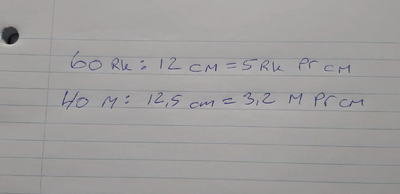 60 Rk: 12 cm = 5 Rk Pr cm
40 M: 12,5 cm = 3,2 M Pr cm